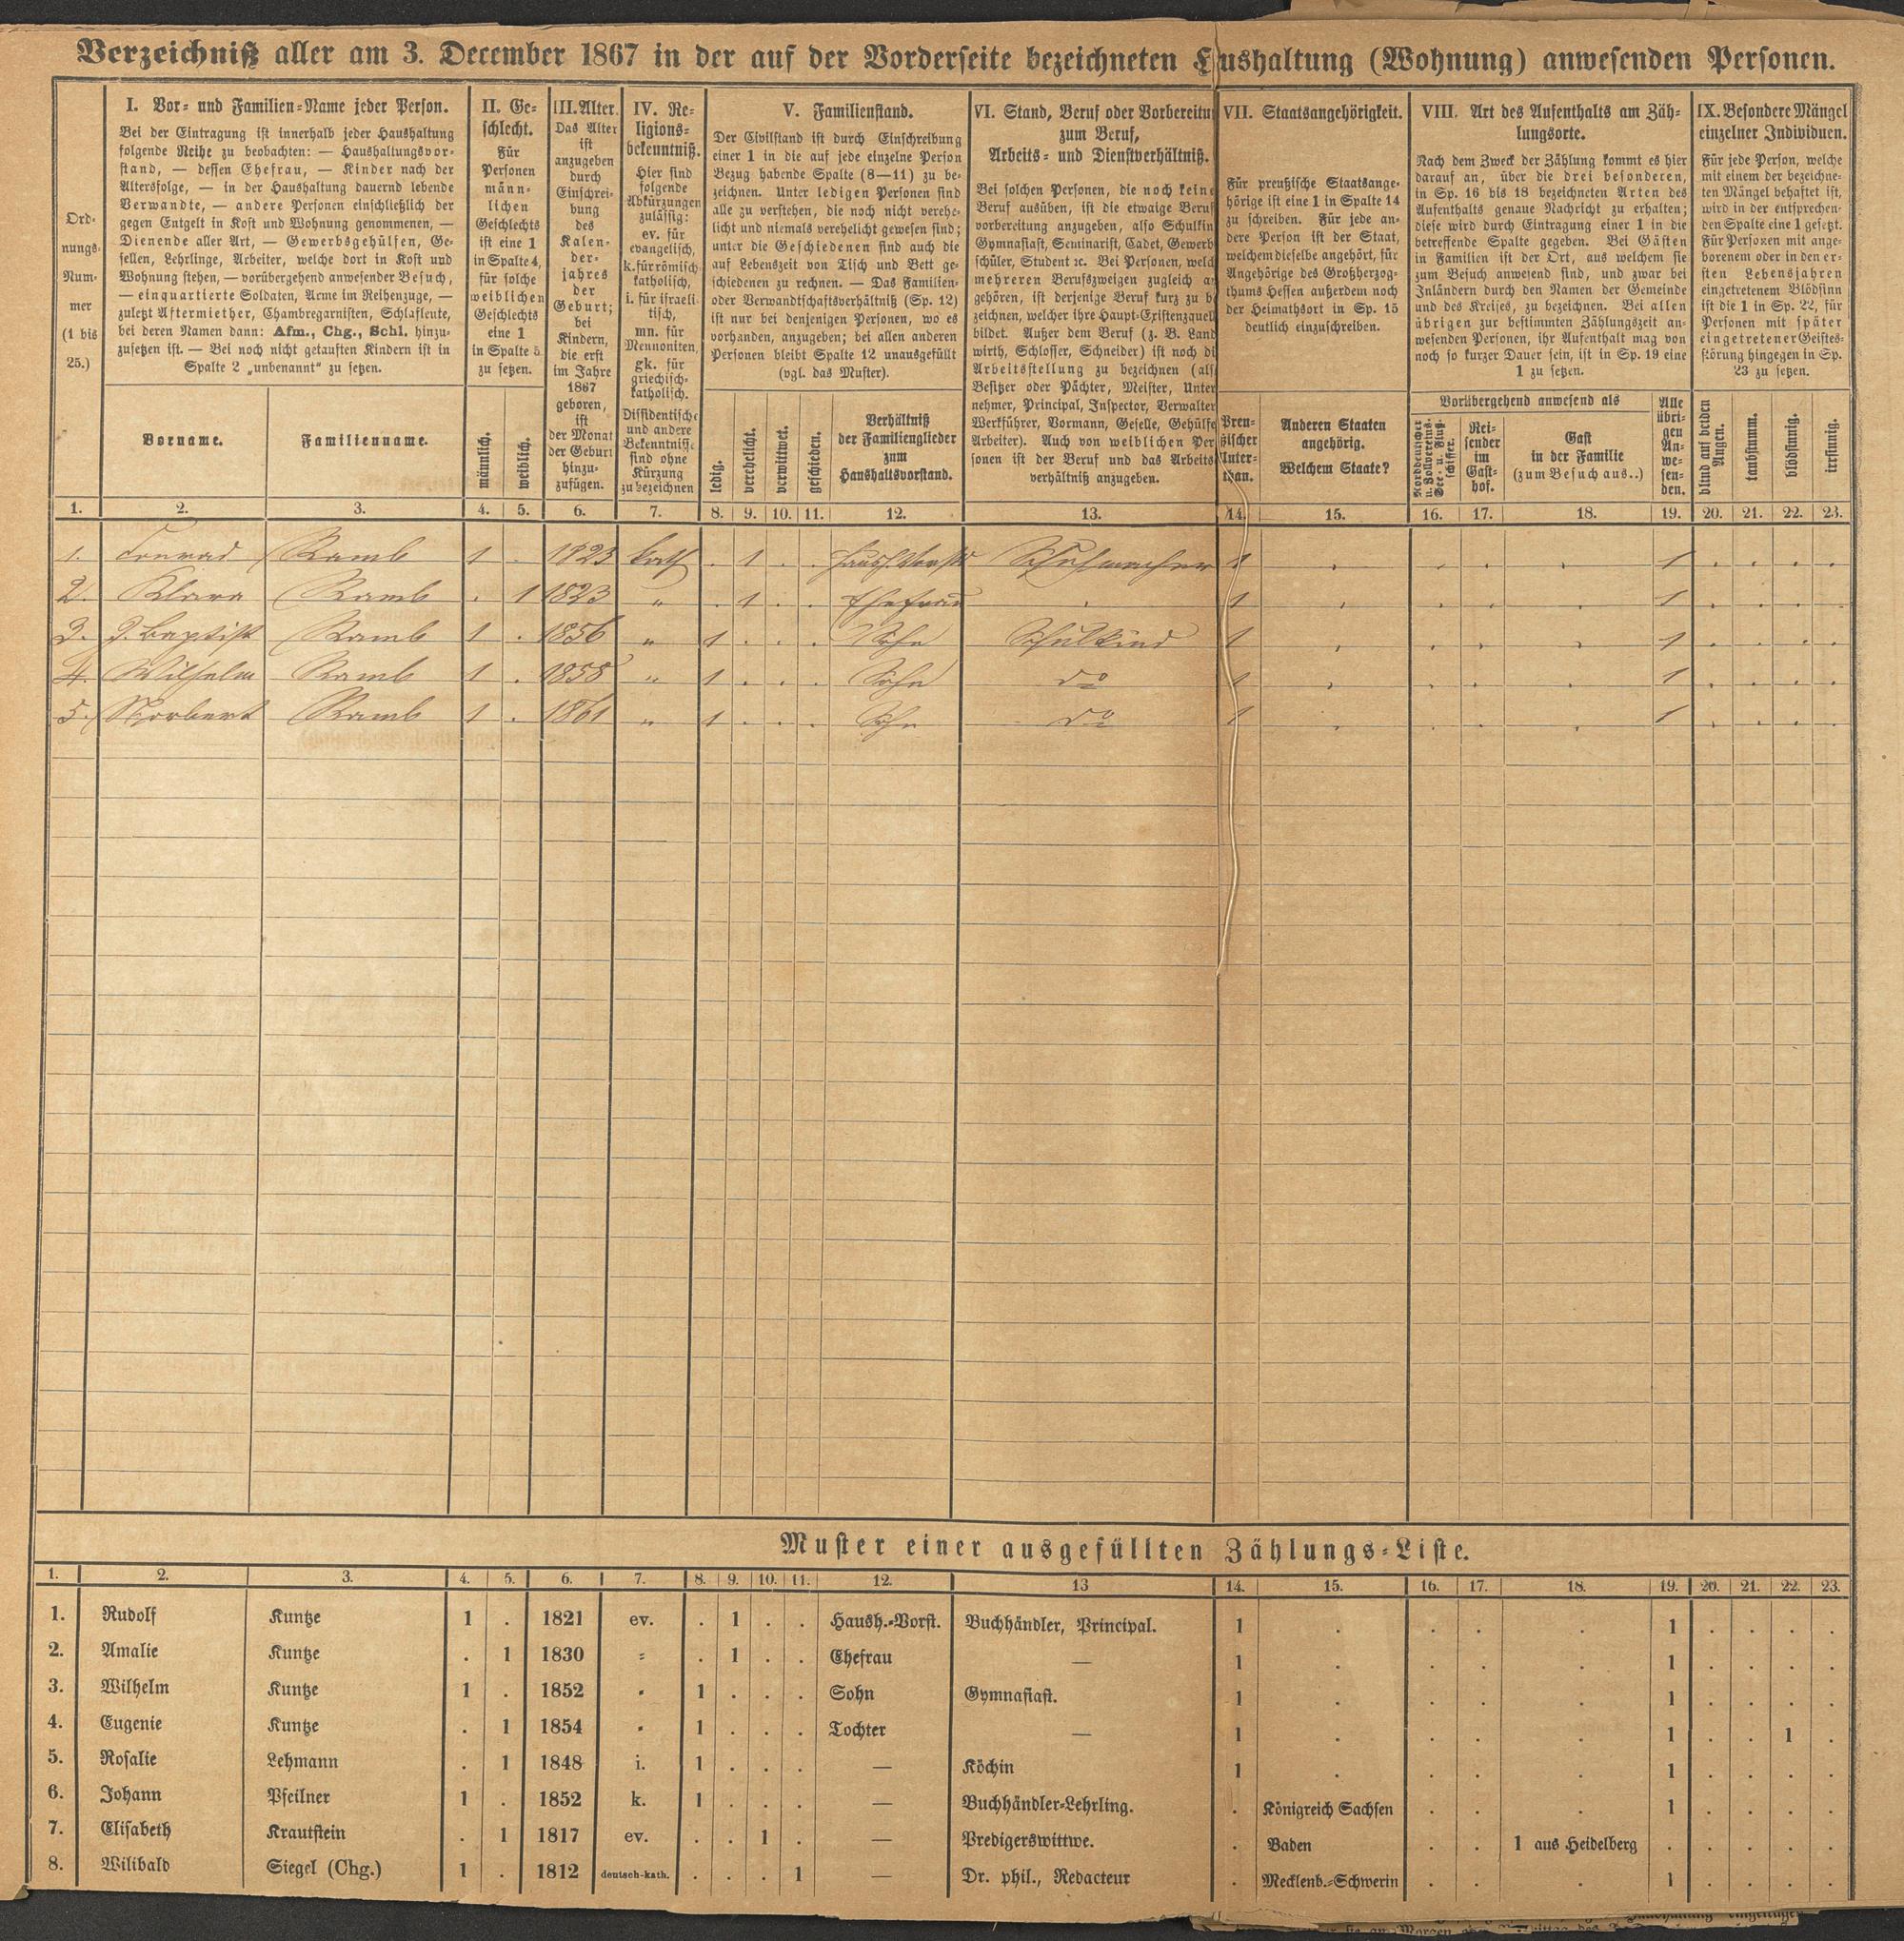 Verzeichniß aller am 3. December 1867 in der auf der Vorderseite bezeichneten Haushaltung (Wohnung) anwesenden Personen.
Ord-
nungs-
Num-
mer
(1 bis
25.)
I. Vor- und Familien-Name jeder Person.
Bei der Eintragung ist innerhalb jeder Haushaltung
folgende Reihe zu beobachten: — Haushaltungsvor-
stand, — dessen Ehefrau, — Kinder nach der
Altersfolge, — in der Haushaltung dauernd lebende
Verwandte, — andere Personen einschließlich der
gegen Entgelt in Kost und Wohnung genommenen, —
Dienende aller Art, — Gewerbsgehülfen, Ge-
sellen, Lehrlinge, Arbeiter, welche dort in Kost und
Wohnung stehen, — vorübergehend anwesender Besuch,
— einquartierte Soldaten, Arme im Reihenzuge, —
zuletzt Aftermiether, Chambregarnisten, Schlafleute,
bei deren Namen dann: Afm., Chg., Schl. hinzu-
zusetzen ist. — Bei noch nicht getauften Kindern ist in
Spalte 2 „unbenannt" zu setzen.
Vorname.
Familienname.
II. Ge-
schlecht.
Für
Personen
männ-
lichen
Geschlechts
ist eine 1
in Spalte 4,
für solche
weiblichen
Geschlechts
eine 1
in Spalte 5
zu setzen.
männlich.
weiblich.
III. Alter.
Das Alter
ist
anzugeben
durch
Einschrei-
bung
des
Kalen-
der-
jahres
der
Geburt;
bei
Kindern,
die erst
im Jahre
1867
geboren,
ist
der Monat
der Geburt
hinzu-
zufügen.
IV. Re-
ligions-
bekenntniß.
Hier sind
folgende
Abkürzungen
zulässig:
ev. für
evangelisch,
k. für römisch-
katholisch,
i. für israeli-
tisch,
mn. für
Mennoniten,
gk. für
griechisch-
katholisch.
Dissidentische
und andere
Bekenntnisse
sind ohne
Kürzung
zu bezeichnen
V. Familienstand.
Der Civilstand ist durch Einschreibung
einer 1 in die auf jede einzelne Person
Bezug habende Spalte (8—11) zu be-
zeichnen. Unter ledigen Personen sind
alle zu verstehen, die noch nicht verehe-
licht und niemals verehelicht gewesen sind;
unter die Geschiedenen sind auch die
auf Lebenszeit von Tisch und Bett ge-
schiedenen zu rechnen. — Das Familien-
oder Verwandtschaftsverhältniß (Sp. 12)
ist nur bei denjenigen Personen, wo es
vorhanden, anzugeben; bei allen anderen
Personen bleibt Spalte 12 unausgefüllt
(vgl. das Muster).
ledig.
verehelicht.
verwittwet.
geschieden.
Verhältniß
der Familienglieder
zum
Haushaltsvorstand.
VI. Stand, Beruf oder Vorbereitu
zum Beruf,
Arbeits- und Dienstverhältniß.
Bei solchen Personen, die noch kein
Beruf ausüben, ist die etwaige Beruf
vorbereitung anzugeben, also Schulkin
Gymnasiast, Seminarist, Cadet, Gewerb
schüler, Student ec. Bei Personen, welch
mehreren Berufszweigen zugleich a
gehören, ist derjenige Beruf kurz zu b
zeichnen, welcher ihre Haupt-Existenzquell
bildet. Außer dem Beruf (z. B. Land
wirth, Schlosser, Schneider) ist noch di
Arbeitsstellung zu bezeichnen (als
Besitzer oder Pächter, Meister, Unter
nehmer, Principal, Inspector, Verwalter
Werkführer, Vormann, Geselle, Gehülfe
Arbeiter). Auch von weiblichen Per
sonen ist der Beruf und das Arbeits
verhältniß anzugeben.
VII. Staatsangehörigkeit.
Für preußische Staatsange-
hörige ist eine 1 in Spalte 14
zu schreiben. Für jede an-
dere Person ist der Staat,
welchem dieselbe angehört, für
Angehörige des Großherzog-
thums Hessen außerdem noch
der Heimathsort in Sp. 15
deutlich einzuschreiben.
Preu-
ßischer
Unter-
than.
Anderen Staaten
angehörig.
Welchem Staate?
VIII. Art des Aufenthalts am Zäh-
lungsorte.
Nach dem Zweck der Zählung kommt es hier
darauf an, über die drei besonderen,
in Sp. 16 bis 18 bezeichneten Arten des
Aufenthalts genaue Nachricht zu erhalten;
diese wird durch Eintragung einer 1 in die
betreffende Spalte gegeben. Bei Gästen
in Familien ist der Ort, aus welchem sie
zum Besuch anwesend sind, und zwar bei
Inländern durch den Namen der Gemeinde
und des Kreises, zu bezeichnen. Bei allen
übrigen zur bestimmten Zählungszeit an-
wesenden Personen, ihr Aufenthalt mag von
noch so kurzer Dauer sein, ist in Sp. 19 eine
1 zu setzen.
Vorübergehend anwesend als
Norddeutscher
u. Zollvereins-
See- u. Fluß-
schiffer.
Rei-
sender
im
Gast-
hof.
Gast
in der Familie
(zum Besuch aus..)
Alle
übri-
gen
An-
we-
sen-
den.
IX. Besondere Mängel
einzelner Individuen.
Für jede Person, welche
mit einem der bezeichne-
ten Mängel behaftet ist,
wird in der entsprechen-
den Spalte eine 1 gesetzt.
Für Personen mit ange-
borenem oder in den er-
sten Lebensjahren
eingetretenem Blödsinn
ist die 1 in Sp. 22, für
Personen mit später
eingetretener Geistes-
störung hingegen in Sp.
23 zu setzen.
blind auf beiden
Augen.
taubstumm.
blödsinnig.
irrsinnig.
1. 2. 3. 4. 5. 6. 7. 8. 9. 10. 11. 12. 13. 14. 15. 16. 17. 18. 19. 20. 21. 22. 23.
1. Conrad Ramb 1 . 1823 kath . 1 . . Haush. Vorst Schuhmacher 1 . . . . 1 . . . .
2. Klara Ramb . 1 1823 " . 1 . . Ehefrau . 1 . . . . 1 . . . .
3. J. Baptist Ramb 1 . 1856 " 1 . . . Sohn Schulkind 1 . . . . 1 . . . .
4. Wilhelm Ramb 1 . 1858 " 1 . . . Sohn do 1 . . . . 1 . . . .
5. Norbert Ramb 1 . 1861 " 1 . . . Sohn do 1 . . . . 1 . . . .
Muster einer ausgefüllten Zählungs-Liste.
1. 2. 3. 4. 5. 6. 7. 8. 9. 10. 11. 12. 13 14. 15. 16. 17. 18. 19. 20. 21. 22. 23.
1. Rudolf Kuntze 1 . 1821 ev. . 1 . . Haush.-Vorst. Buchhändler, Principal. 1 . . . . 1 . . . .
2. Amalie Kuntze . 1 1830 " . 1 . . Ehefrau — 1 . . . . 1 . . . .
3. Wilhelm Kuntze 1 . 1852 " 1 . . . Sohn Gymnasiast. 1 . . . . 1 . . . .
4. Eugenie Kuntze . 1 1854 " 1 . . . Tochter — 1 . . . . 1 . . 1 .
5. Rosalie Lehmann . 1 1848 i. 1 . . . — Köchin 1 . . . . 1 . . . .
6. Johann Pfeilner 1 . 1852 k. 1 . . . — Buchhändler-Lehrling. . Königreich Sachsen . . . 1 . . . .
7. Elisabeth Krautstein . 1 1817 ev. . . 1 . — Predigerswittwe. . Baden . . 1 aus Heidelberg . . . . .
8. Wilibald Siegel (Chg.) 1 . 1812 deutsch-kath. . . . 1 — Dr. phil., Redacteur . Mecklenb.-Schwerin . . . 1 . . . .